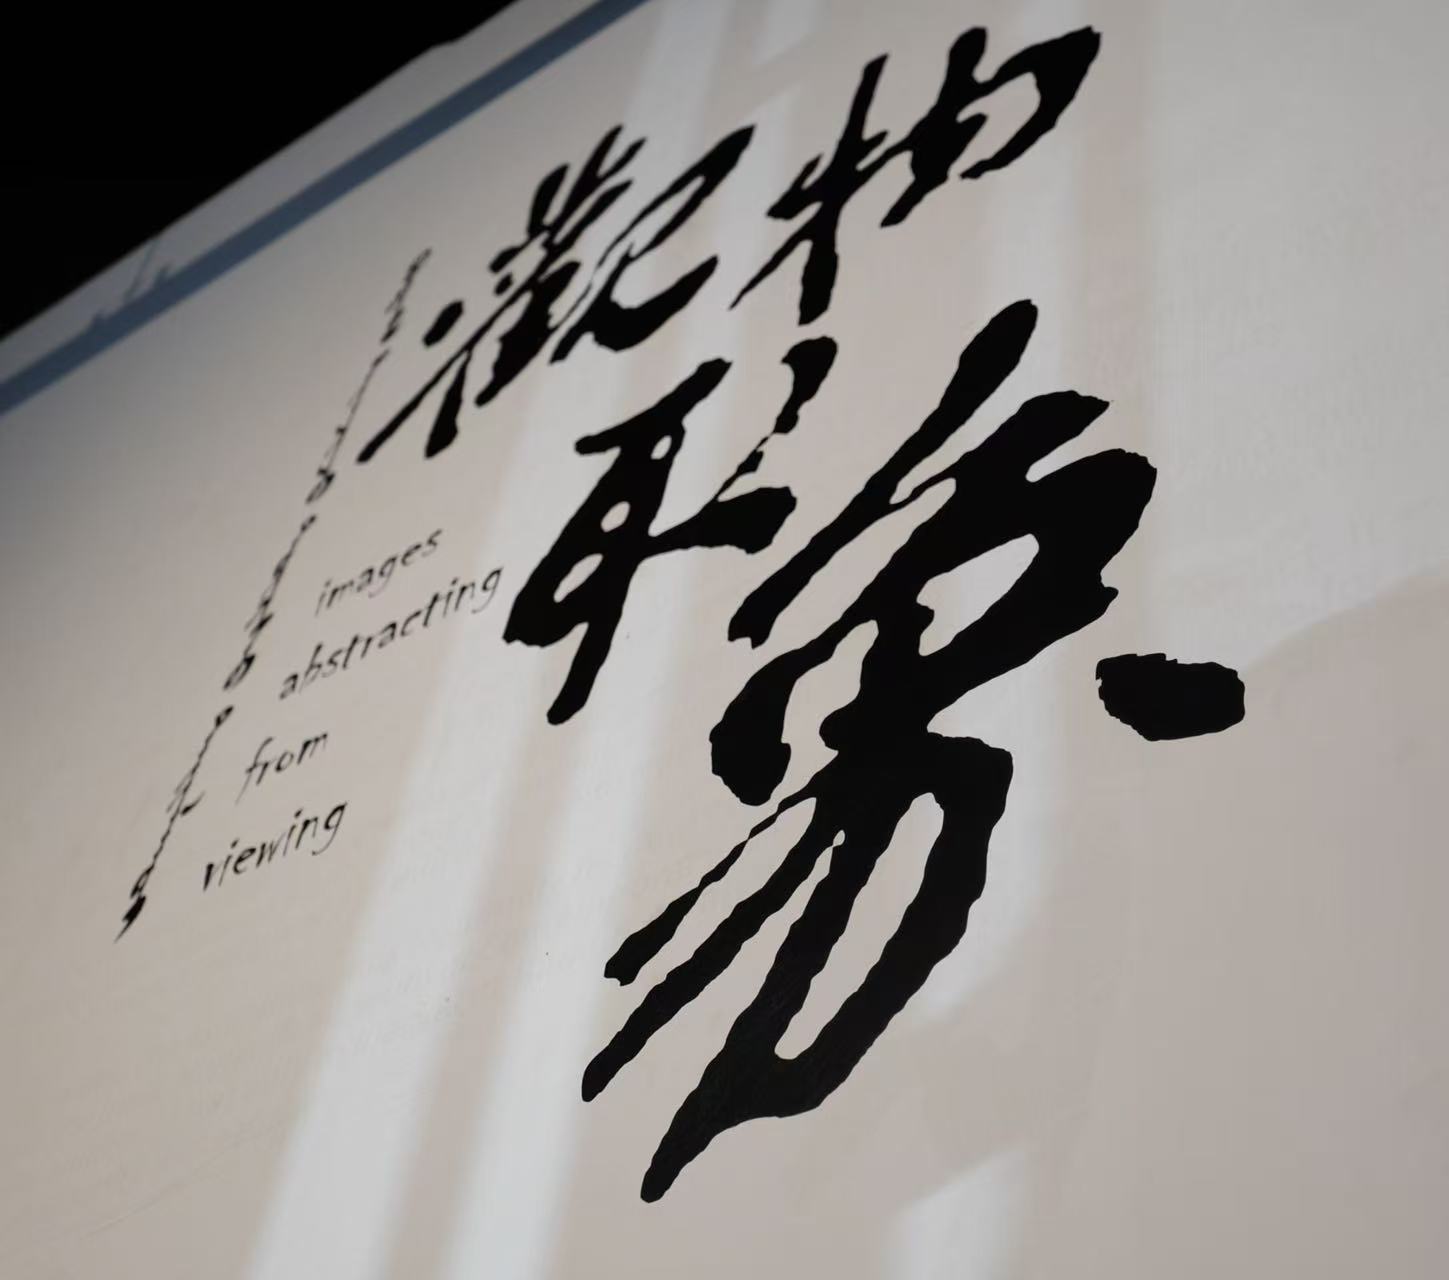 觀物
取象
images
abstracting
from
viewing